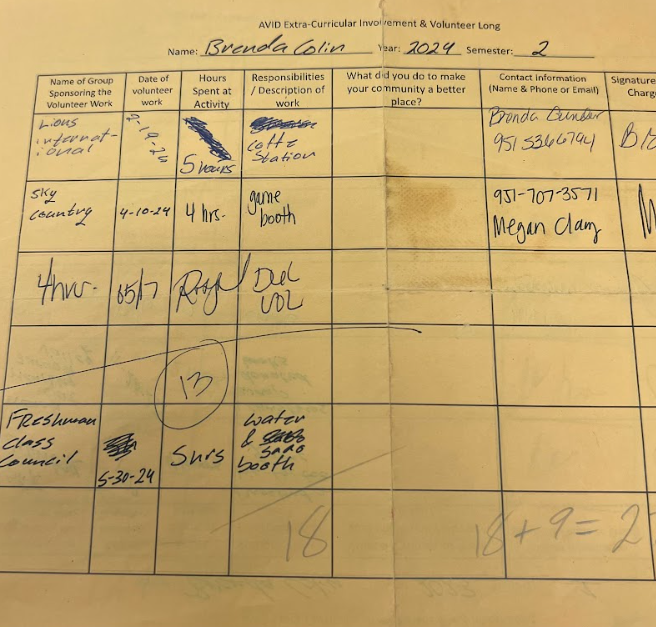 AVID Extra-Curricular Involvement & Volunteer Long
Name: Brenda Colin Year: 2024 Semester: 2
Name of Group Sponsoring the Volunteer Work
Date of volunteer work
Hours Spent at Activity
Responsibilities / Description of work
What did you do to make your community a better place?
Contact Information (Name & Phone or Email)
Signature
Charg
Lions
internat-
ional
5 hours
Station
Brenda
951 5366794
Sky
Country
4-10-24
4 hrs.
game
booth
951-707-3571
Megan
05/7
VOL
13
Freshman
Class
Council
5-30-24
5hrs
water
&
booth
18
18+9=2